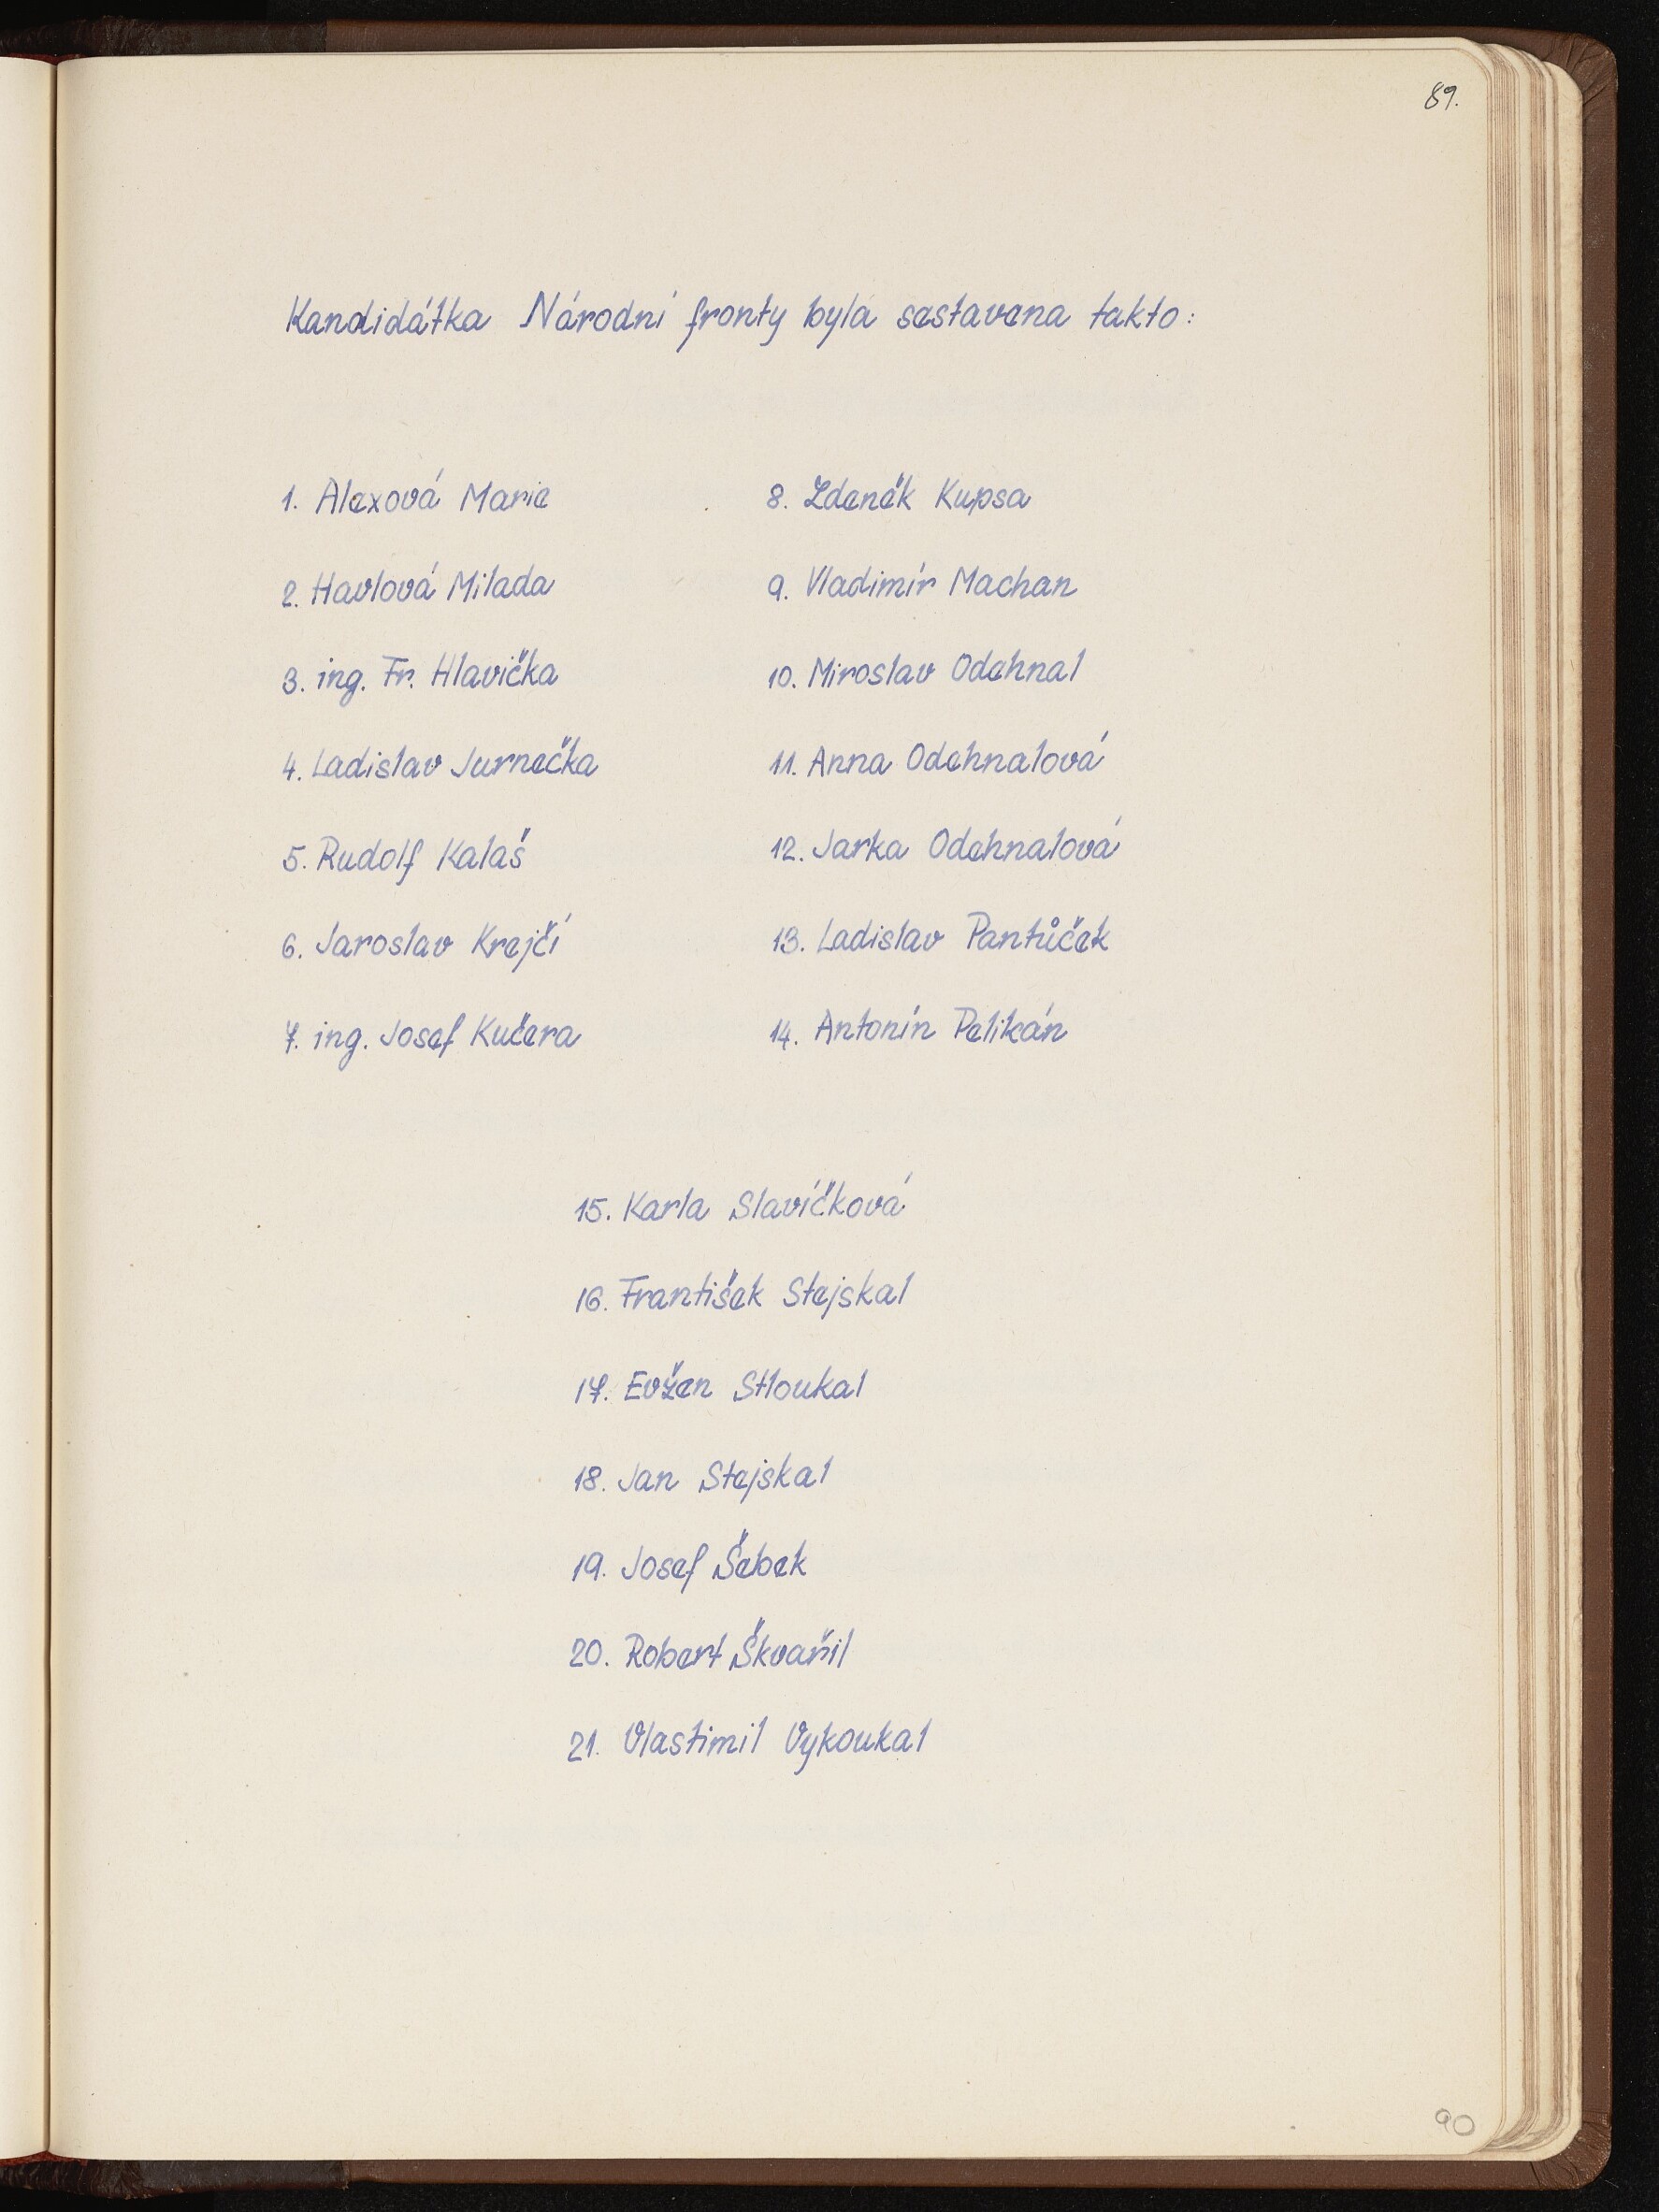 89.
Kandidátka Národní fronty byla sestavena takto:
1. Alexová Marie
2. Havlová Milada
3. ing. Fr. Hlavička
4. Ladislav Jurnečka
5. Rudolf Kalaš
6. Jaroslav Krejčí
7. ing. Josef Kučera
8. Zdeněk Kupsa
9. Vladimír Machan
10. Miroslav Odehnal
11. Anna Odehnalová
12. Jarka Odehnalová
13. Ladislav Pantůček
14. Antonín Pelikán
15. Karla Slavíčková
16. František Stejskal
17. Evžen Stloukal
18. Jan Stejskal
19. Josef Šebek
20. Robert Škvařil
21. Vlastimil Vykoukal
90